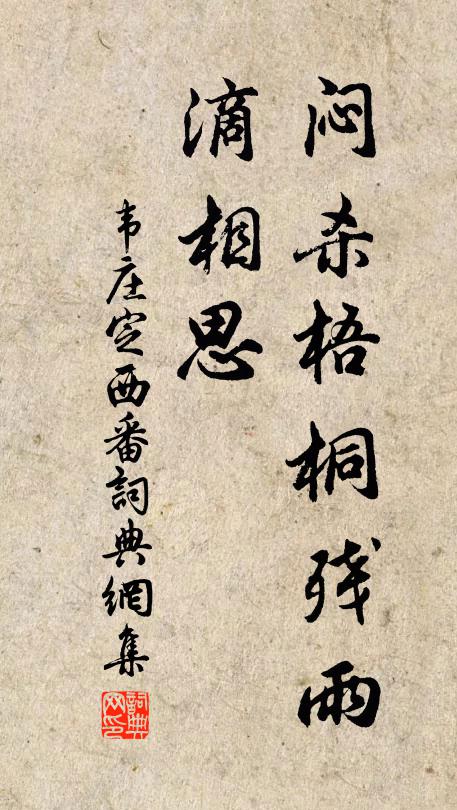 闷杀梧桐残雨
滴相思
韦庄定西番詞典網集
詞典网印